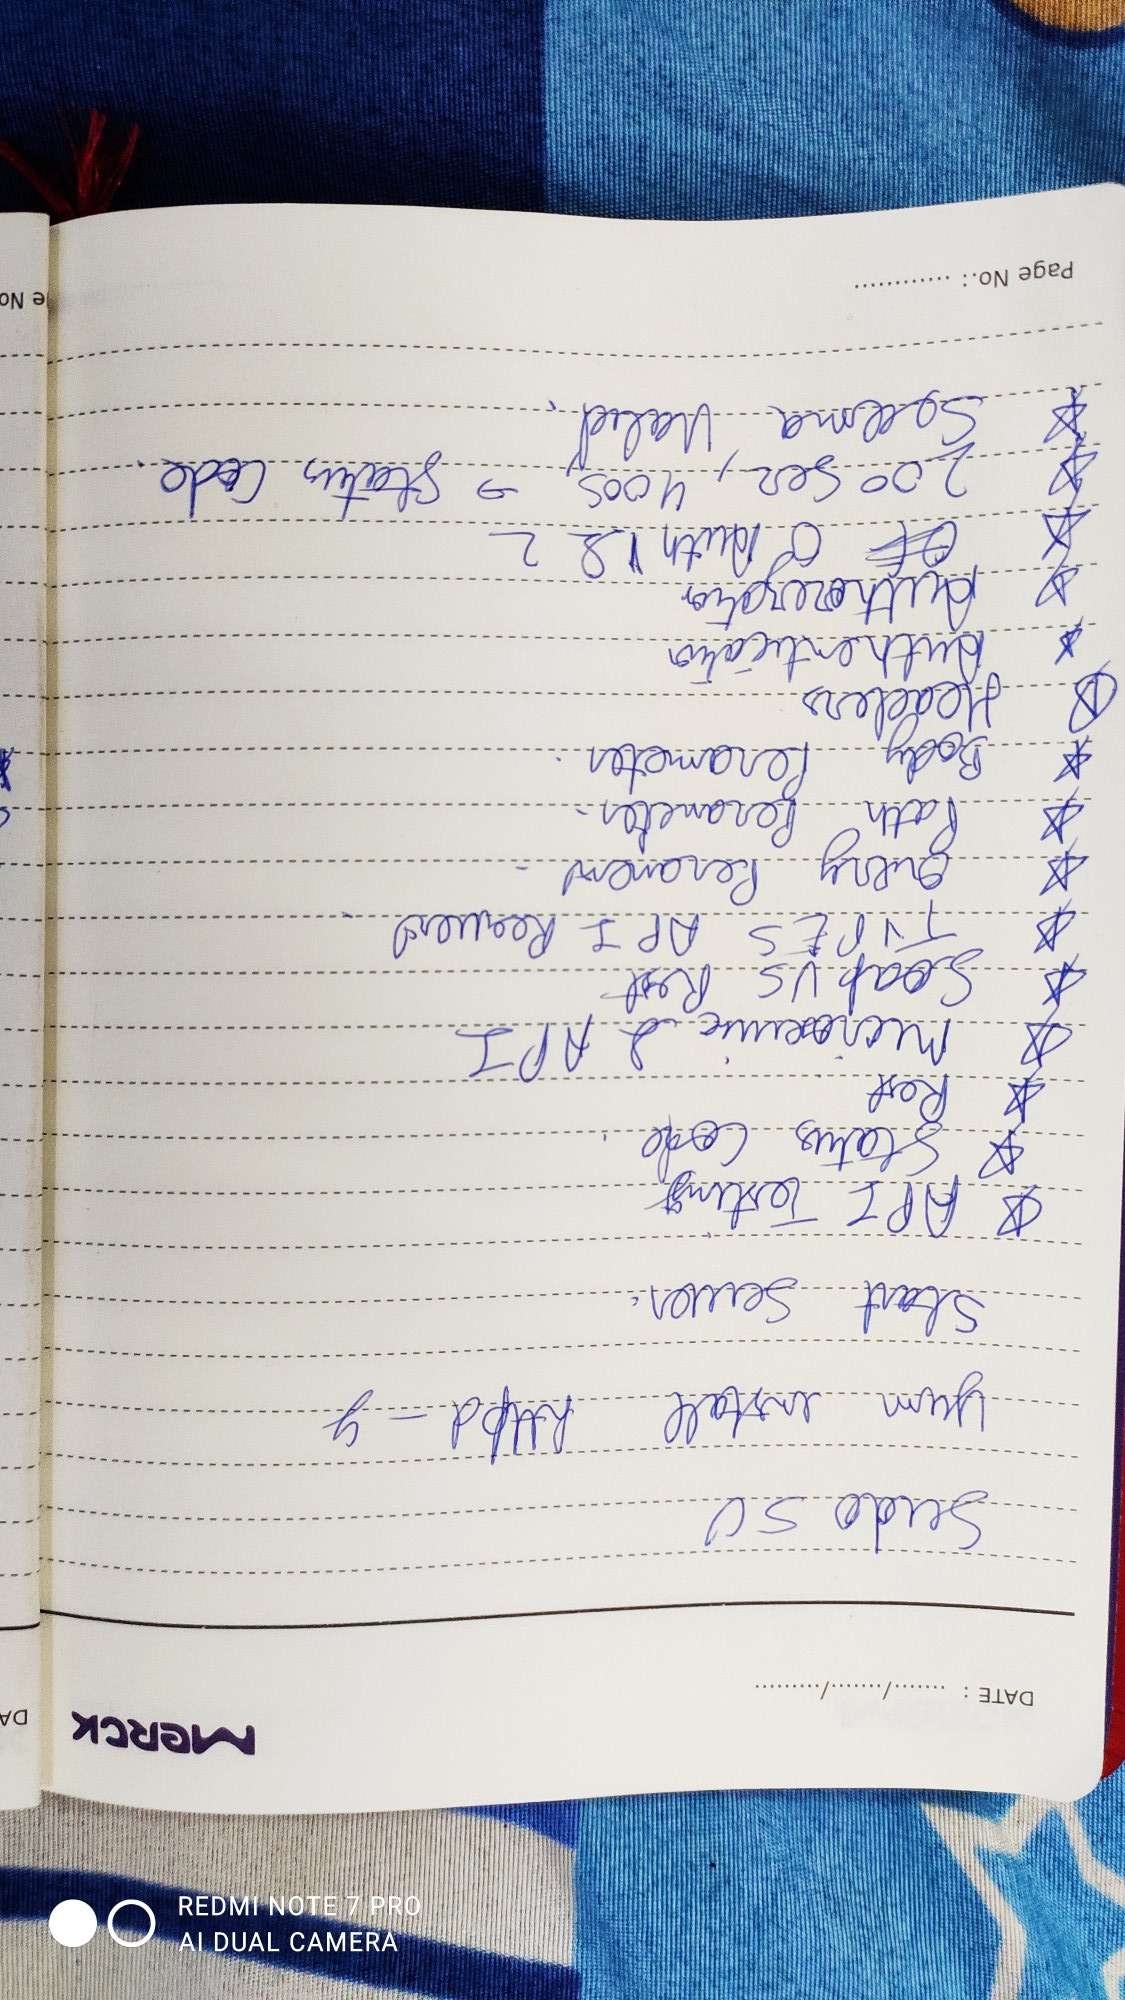 MERCK
DATE : ......./......./.........
Sudo SU
Yum install httpd -y
Start Server.
API Testing
Status Code.
Rest
Microservice & API
Soap VS Rest
TYPES API Request.
Query
Path Perameter.
Body Perameter.
Headers
Authentication
Authorezation
O Auth 1 & 2
200 Ser, 400S, → Status Code.
Scema Valid.
Page No.: ............
DA
e No
REDMI NOTE 7 PRO
AI DUAL CAMERA